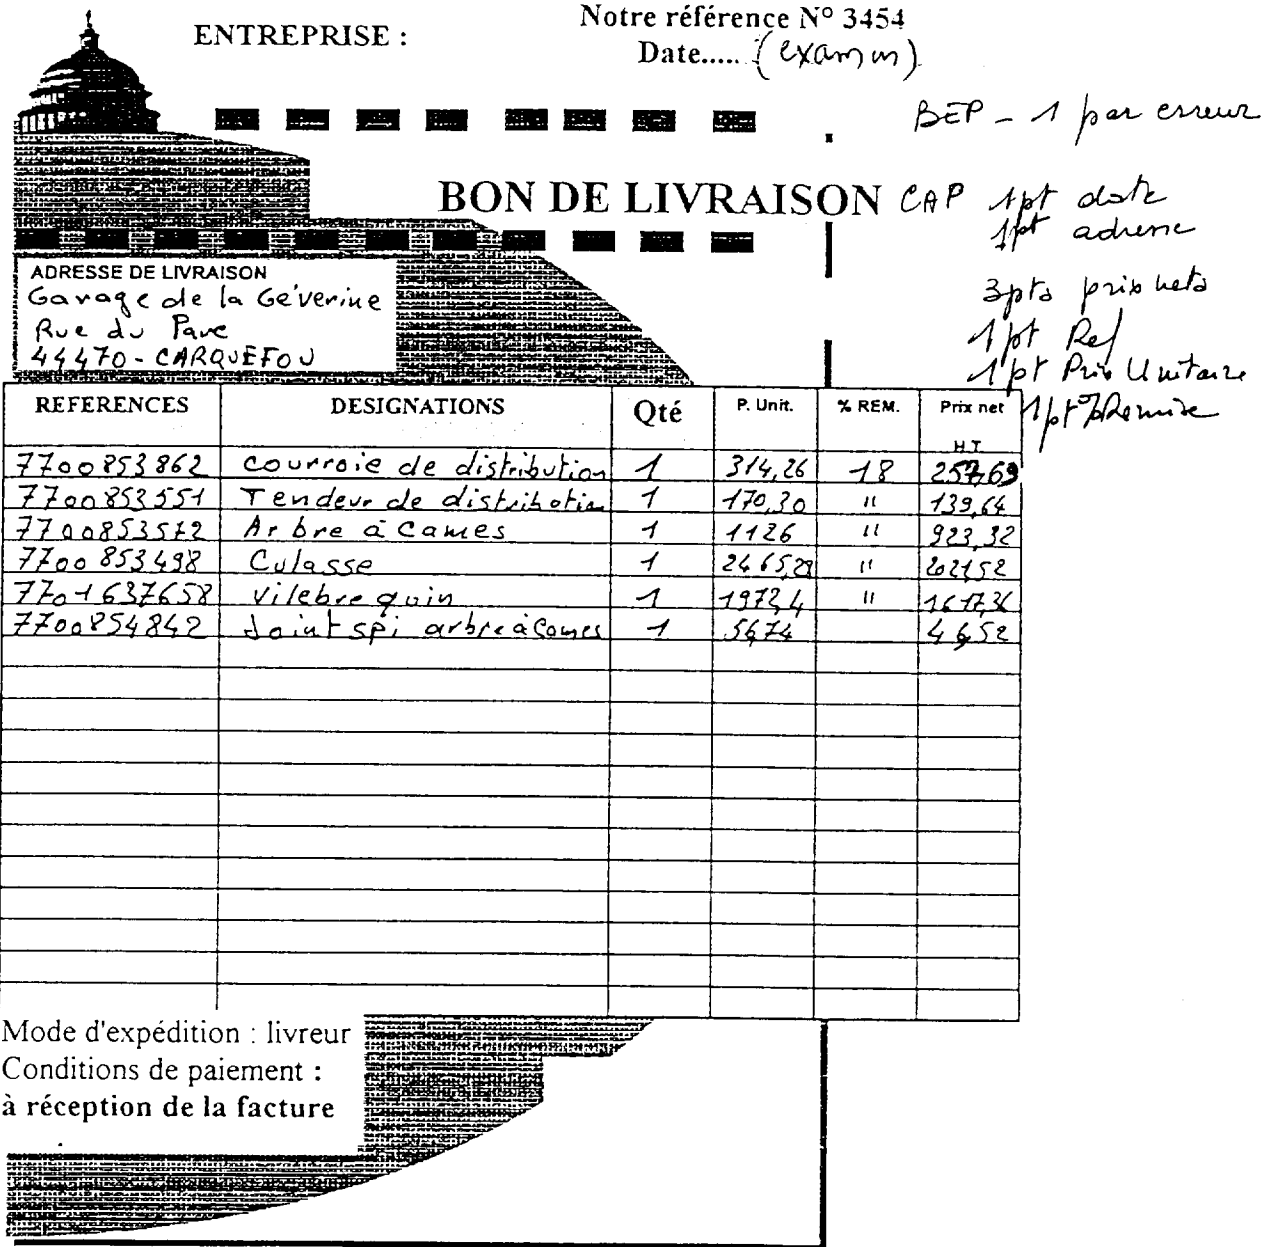 ENTREPRISE :
Notre référence N° 3454
Date..... (examen)
BEP - 1 par erreur
BON DE LIVRAISON
CAP 1pt date
1pt adresse
3pts prix nets
1pt Ref
1pt Prix Unitaire
1pt % Remise
ADRESSE DE LIVRAISON
Garage de la Géverine
Rue du Parc
44470 - CARQUEFOU
REFERENCES DESIGNATIONS Qté P. Unit. % REM. Prix net H.T
7700853862 courroie de distribution 1 314,26 18 257,69
7700853551 Tendeur de distribution 1 170,30 " 139,64
7700853572 Arbre à Cames 1 1126 " 923,32
7700853498 Culasse 1 2465,29 " 2021,52
7701637658 Vilebrequin 1 1972,4 " 1617,36
7700854842 Joint spi arbre à Cames 1 56,74 46,52
Mode d'expédition : livreur
Conditions de paiement :
à réception de la facture